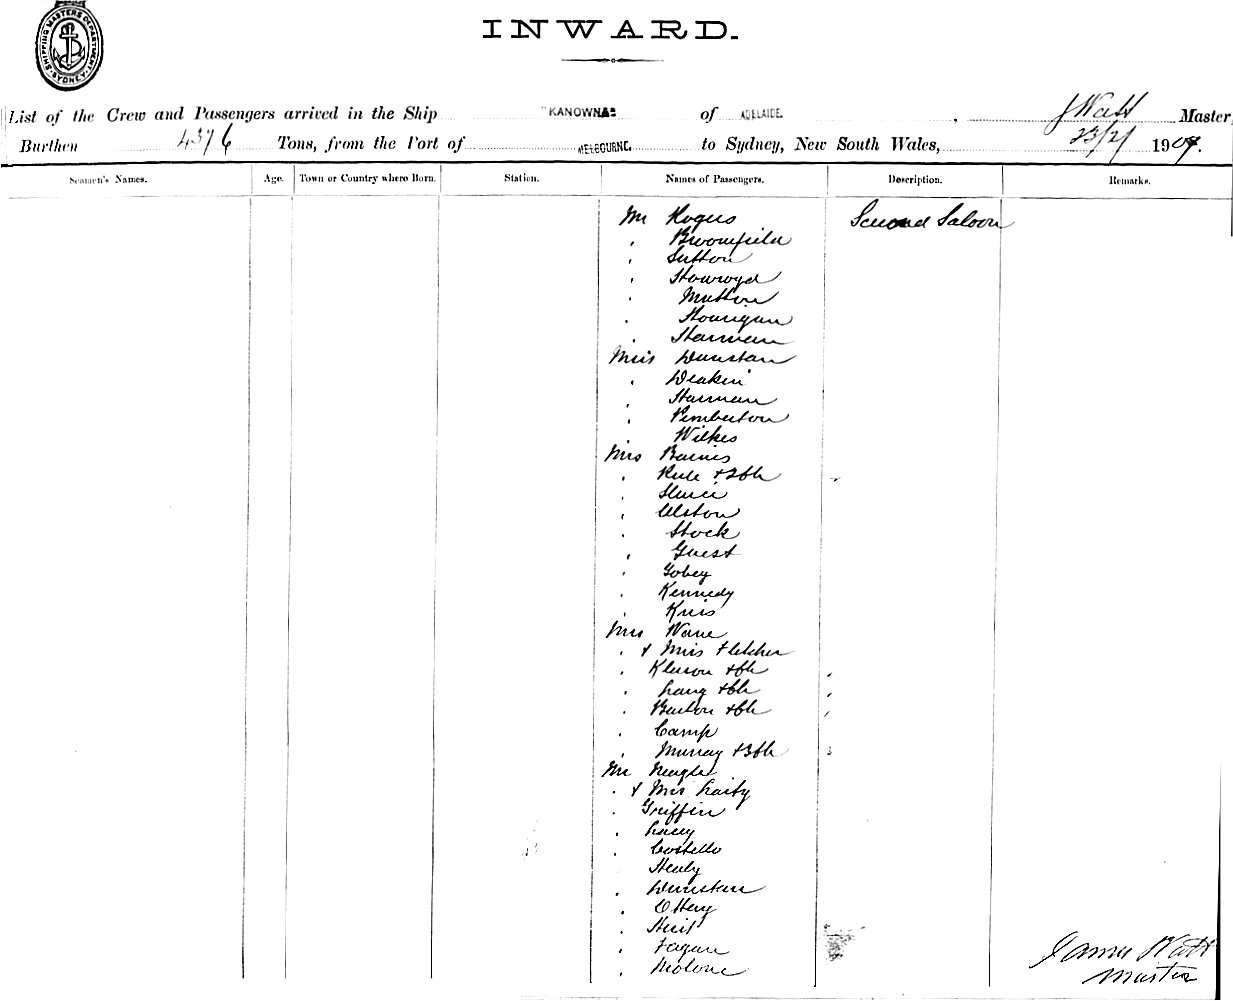 SHIPPING MASTERS DEPARTMENT SYDNEY
INWARD.
List of the Crew and Passengers arrived in the Ship "KANOWNA" of ADELAIDE. , J Watt Master
Burthen 4376 Tons, from the Port of MELBOURNE. to Sydney, New South Wales, 23/2/ 1907.
Seamen's Names. Age. Town or Country where Born. Station. Names of Passengers. Description. Remarks.
Mr Rogers Second Saloon
" Broomfield
" Sutton
" Mutton
" Hourigan
" Harman
Miss Dunstan
" Deakin
" Harman
" Pemberton
" Wilkes
Mrs Baines
" Rule + 2 ch
" Alston
" Stock
" Guest
" Gobey
" Kennedy
" Kris
Mrs Wane
" + Miss Fletcher
" + ch
" Lang + ch
" Barton + ch
" Camp
" Murray + 3 ch 3
Mr Neagle
" + Mrs Laity
" Griffin
" Lacey
" Costello
" Healy
" Dunstan
" Ottery
" Fagan
" Molone
James Watt
Master